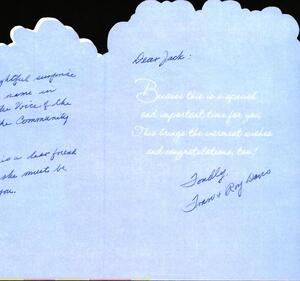 ghtful surprise
name in
the Voice of the
the Community
is a dear fresh
she must be
you.
Dear Jack:
Because this is a special
and important time for you,
This brings the warmest wishes
and congratulations, too!
Fondly,
Fran + Roy Davis